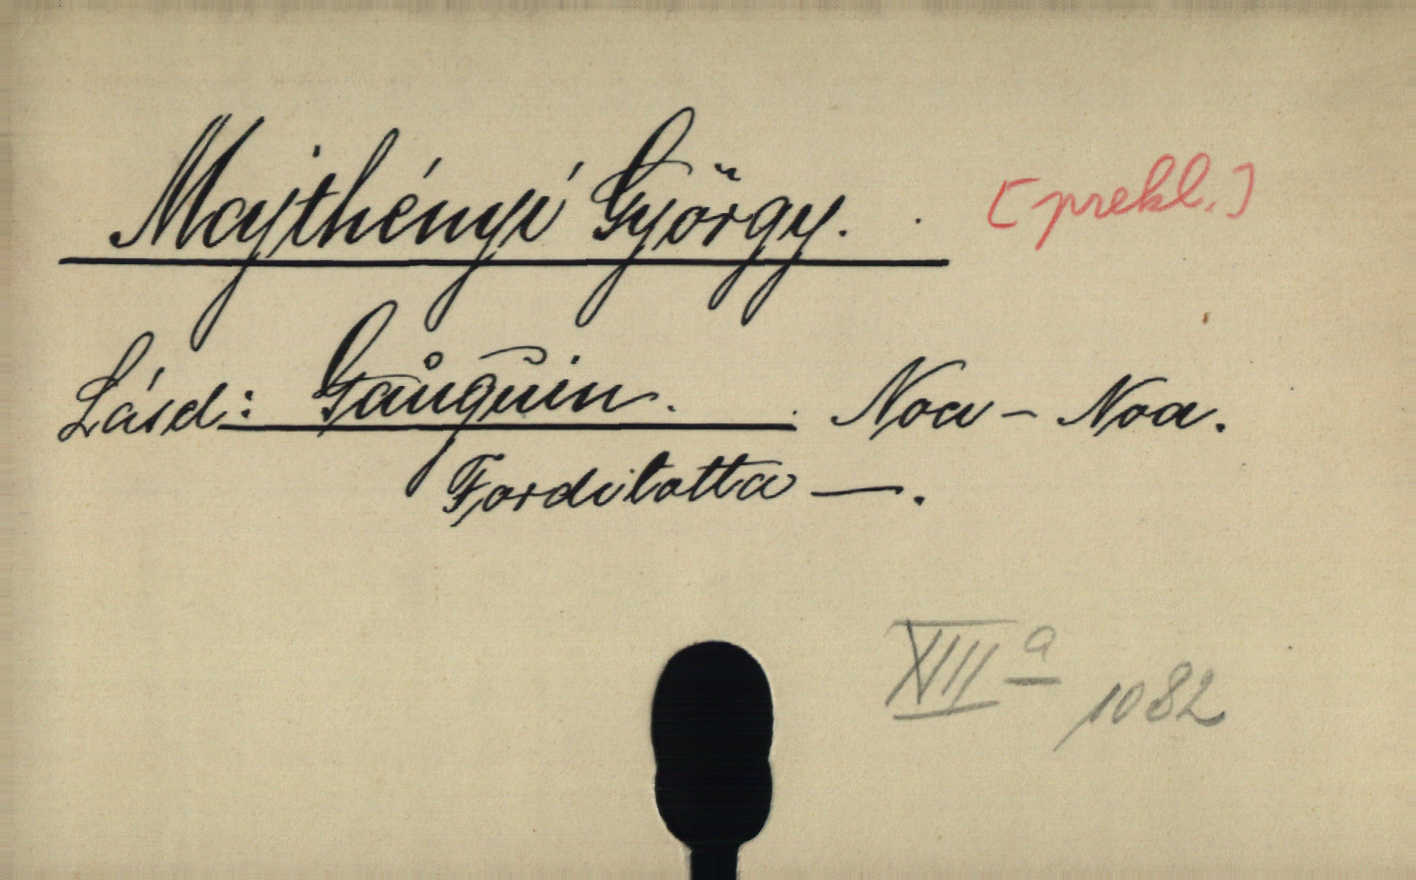 Majthényi György. [prekl.]
Lásd: Gauguin. Noa - Noa.
Fordította —.
XIII a 1082